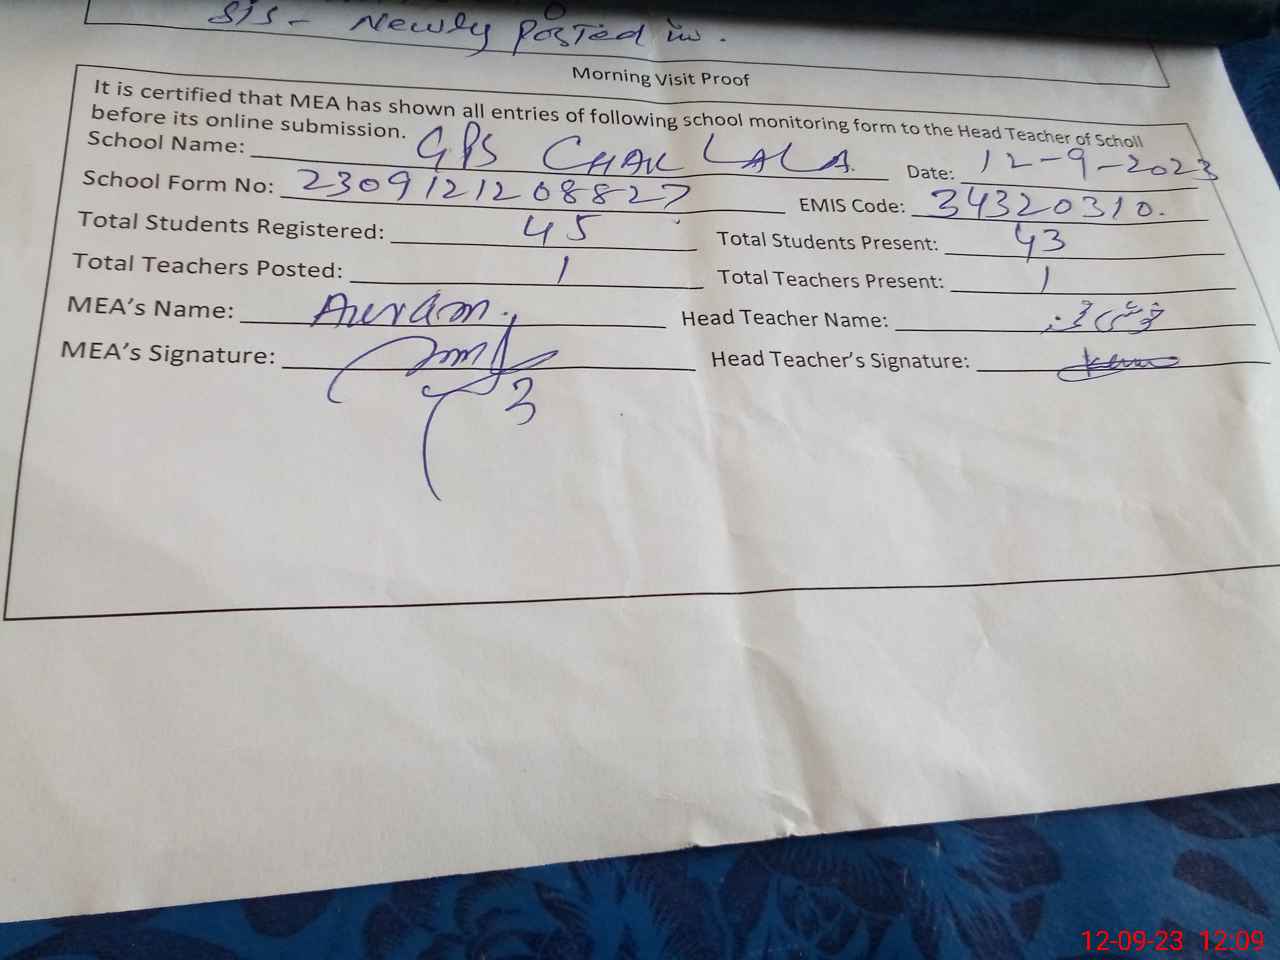 SIS - Newly posted in.
Morning Visit Proof
It is certified that MEA has shown all entries of following school monitoring form to the Head Teacher of Scholl
before its online submission.
School Name: GPS CHAK LALA. Date: 12-9-2023
School Form No: 2309121208827 EMIS Code: 34320310.
Total Students Registered: 45 Total Students Present: 43
Total Teachers Posted: 1 Total Teachers Present: 1
MEA's Name: Head Teacher Name:
MEA's Signature: Head Teacher's Signature:
12-09-23 12:09